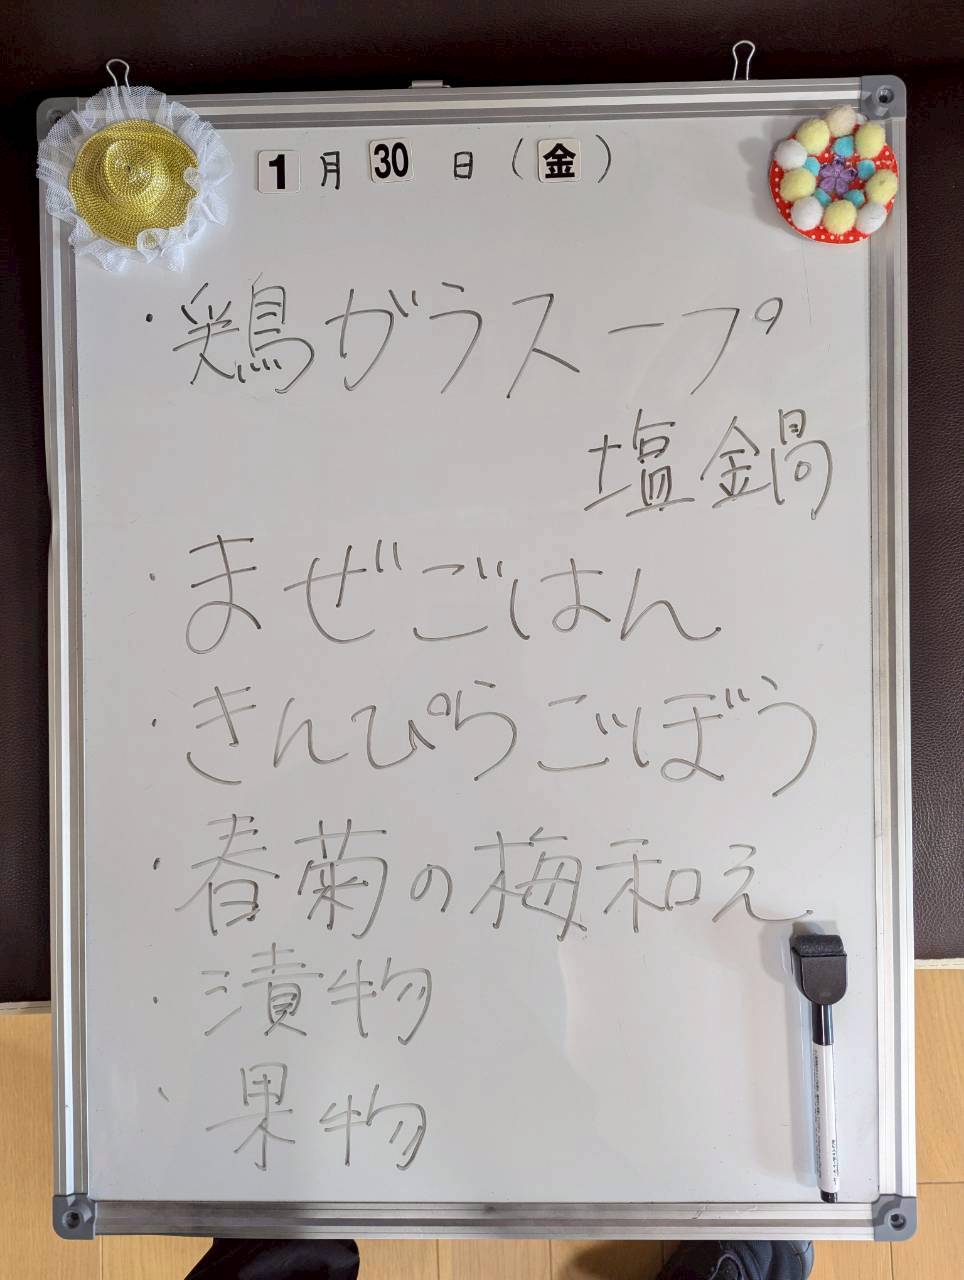 1月30日(金)
・鶏がらスープ
塩鍋
・まぜごはん
・きんぴらごぼう
・春菊の梅和え
・漬物
・果物